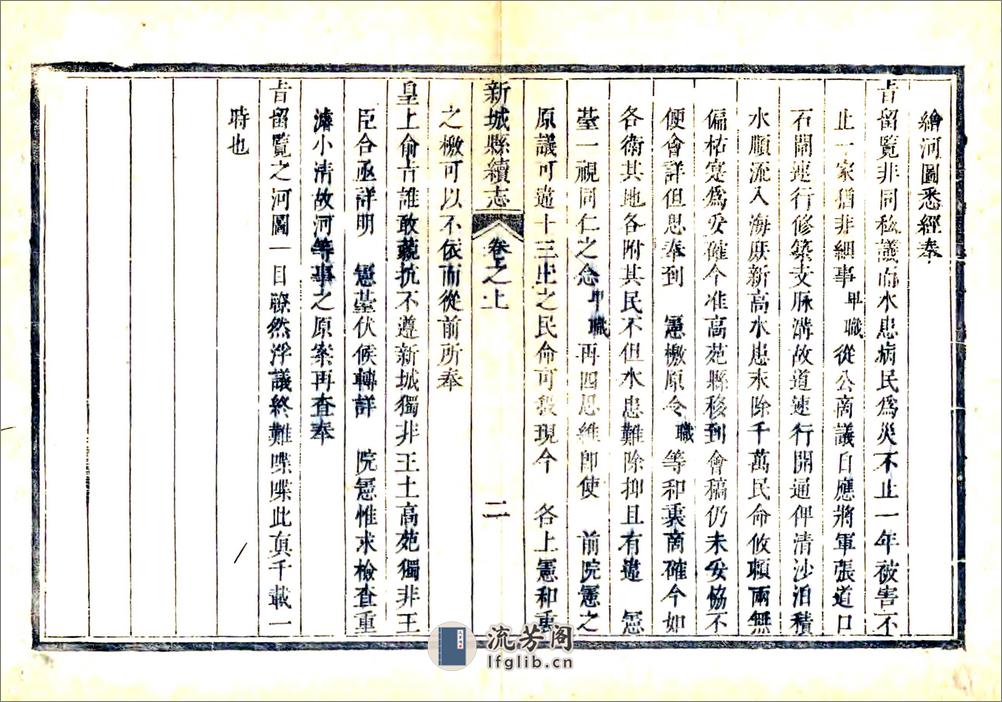 繪河圖悉經奏
旨留覽非同私議而水患病民為災不止一年被害不
止一家猶非細事卑職從公商議自應將軍張道口
石閘運行修築支脉溝故道速行開通俾清沙泊積
水順流入海庶新高水患永除千萬民命攸賴兩無
偏枯寔為妥確今准高苑縣移到會稿仍未妥協不
便會詳但思奉到 憲檄原令職等和衷商確今如
各衛其地各附其民不但水患難除抑且有違 憲
臺一視同仁之念卑職再四思維即使 前院憲之
原議可違十三庄之民命可殺現今 各上憲和重
新城縣續志 卷之上 二
之檄可以不依而從前所奉
皇上俞旨誰敢藐抗不遵新城獨非王土高苑獨非王
臣合亟詳明 憲臺伏候轉詳 院憲惟求檢查重
濬小清故河等事之原案再查奉
旨留覽之河圖一目瞭然浮議終難喋喋此真千載一
時也
流芳阁
lfglib.cn